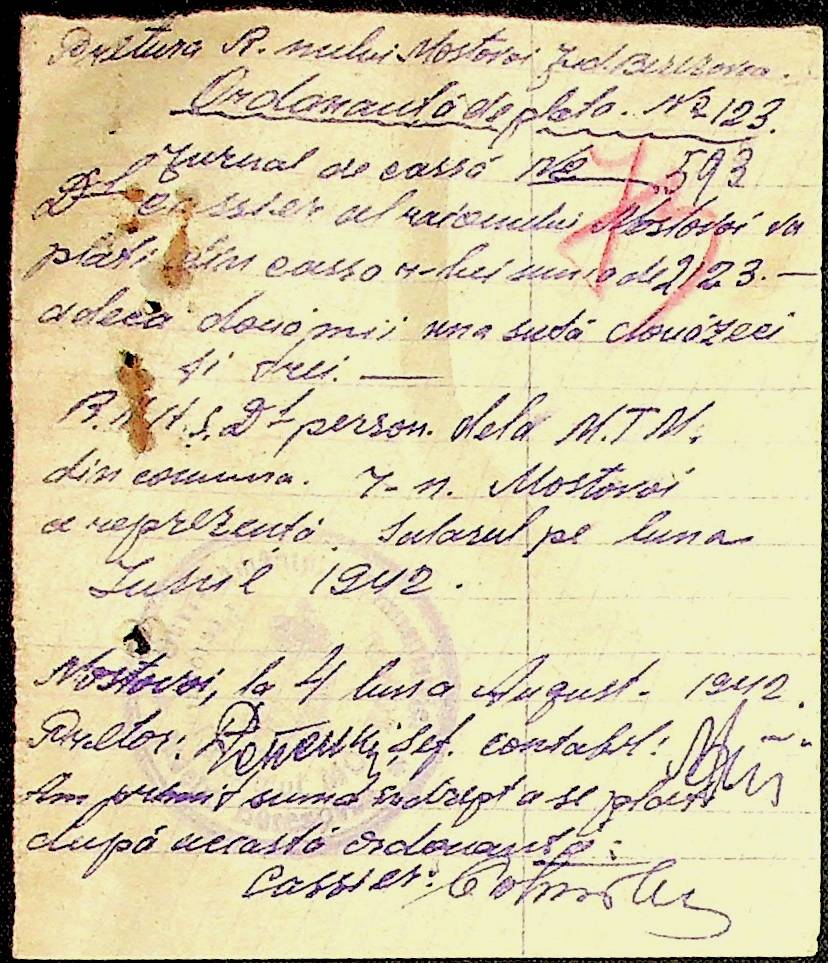 Pretura R. nului Mostovoi Jud. Berezovca.
Ordonanță de plata. No 123.
Jurnal de cassă No 593
13
Dl cassier al raionului Mostovoi va
plati din cassa r-lui suma de 2123.—
adecă două mii una sută douăzeci
și trei. —
Dl person. dela M.T.M.
din comuna. Mostovoi
a reprezentă Salarul pe luna
Iulie 1942.
Mostovoi, la 4 luna August - 1942.
Pretor: Șef. contabil:
Am primit suma îndrept a se plăti
după această ordonanță:
Cassier: